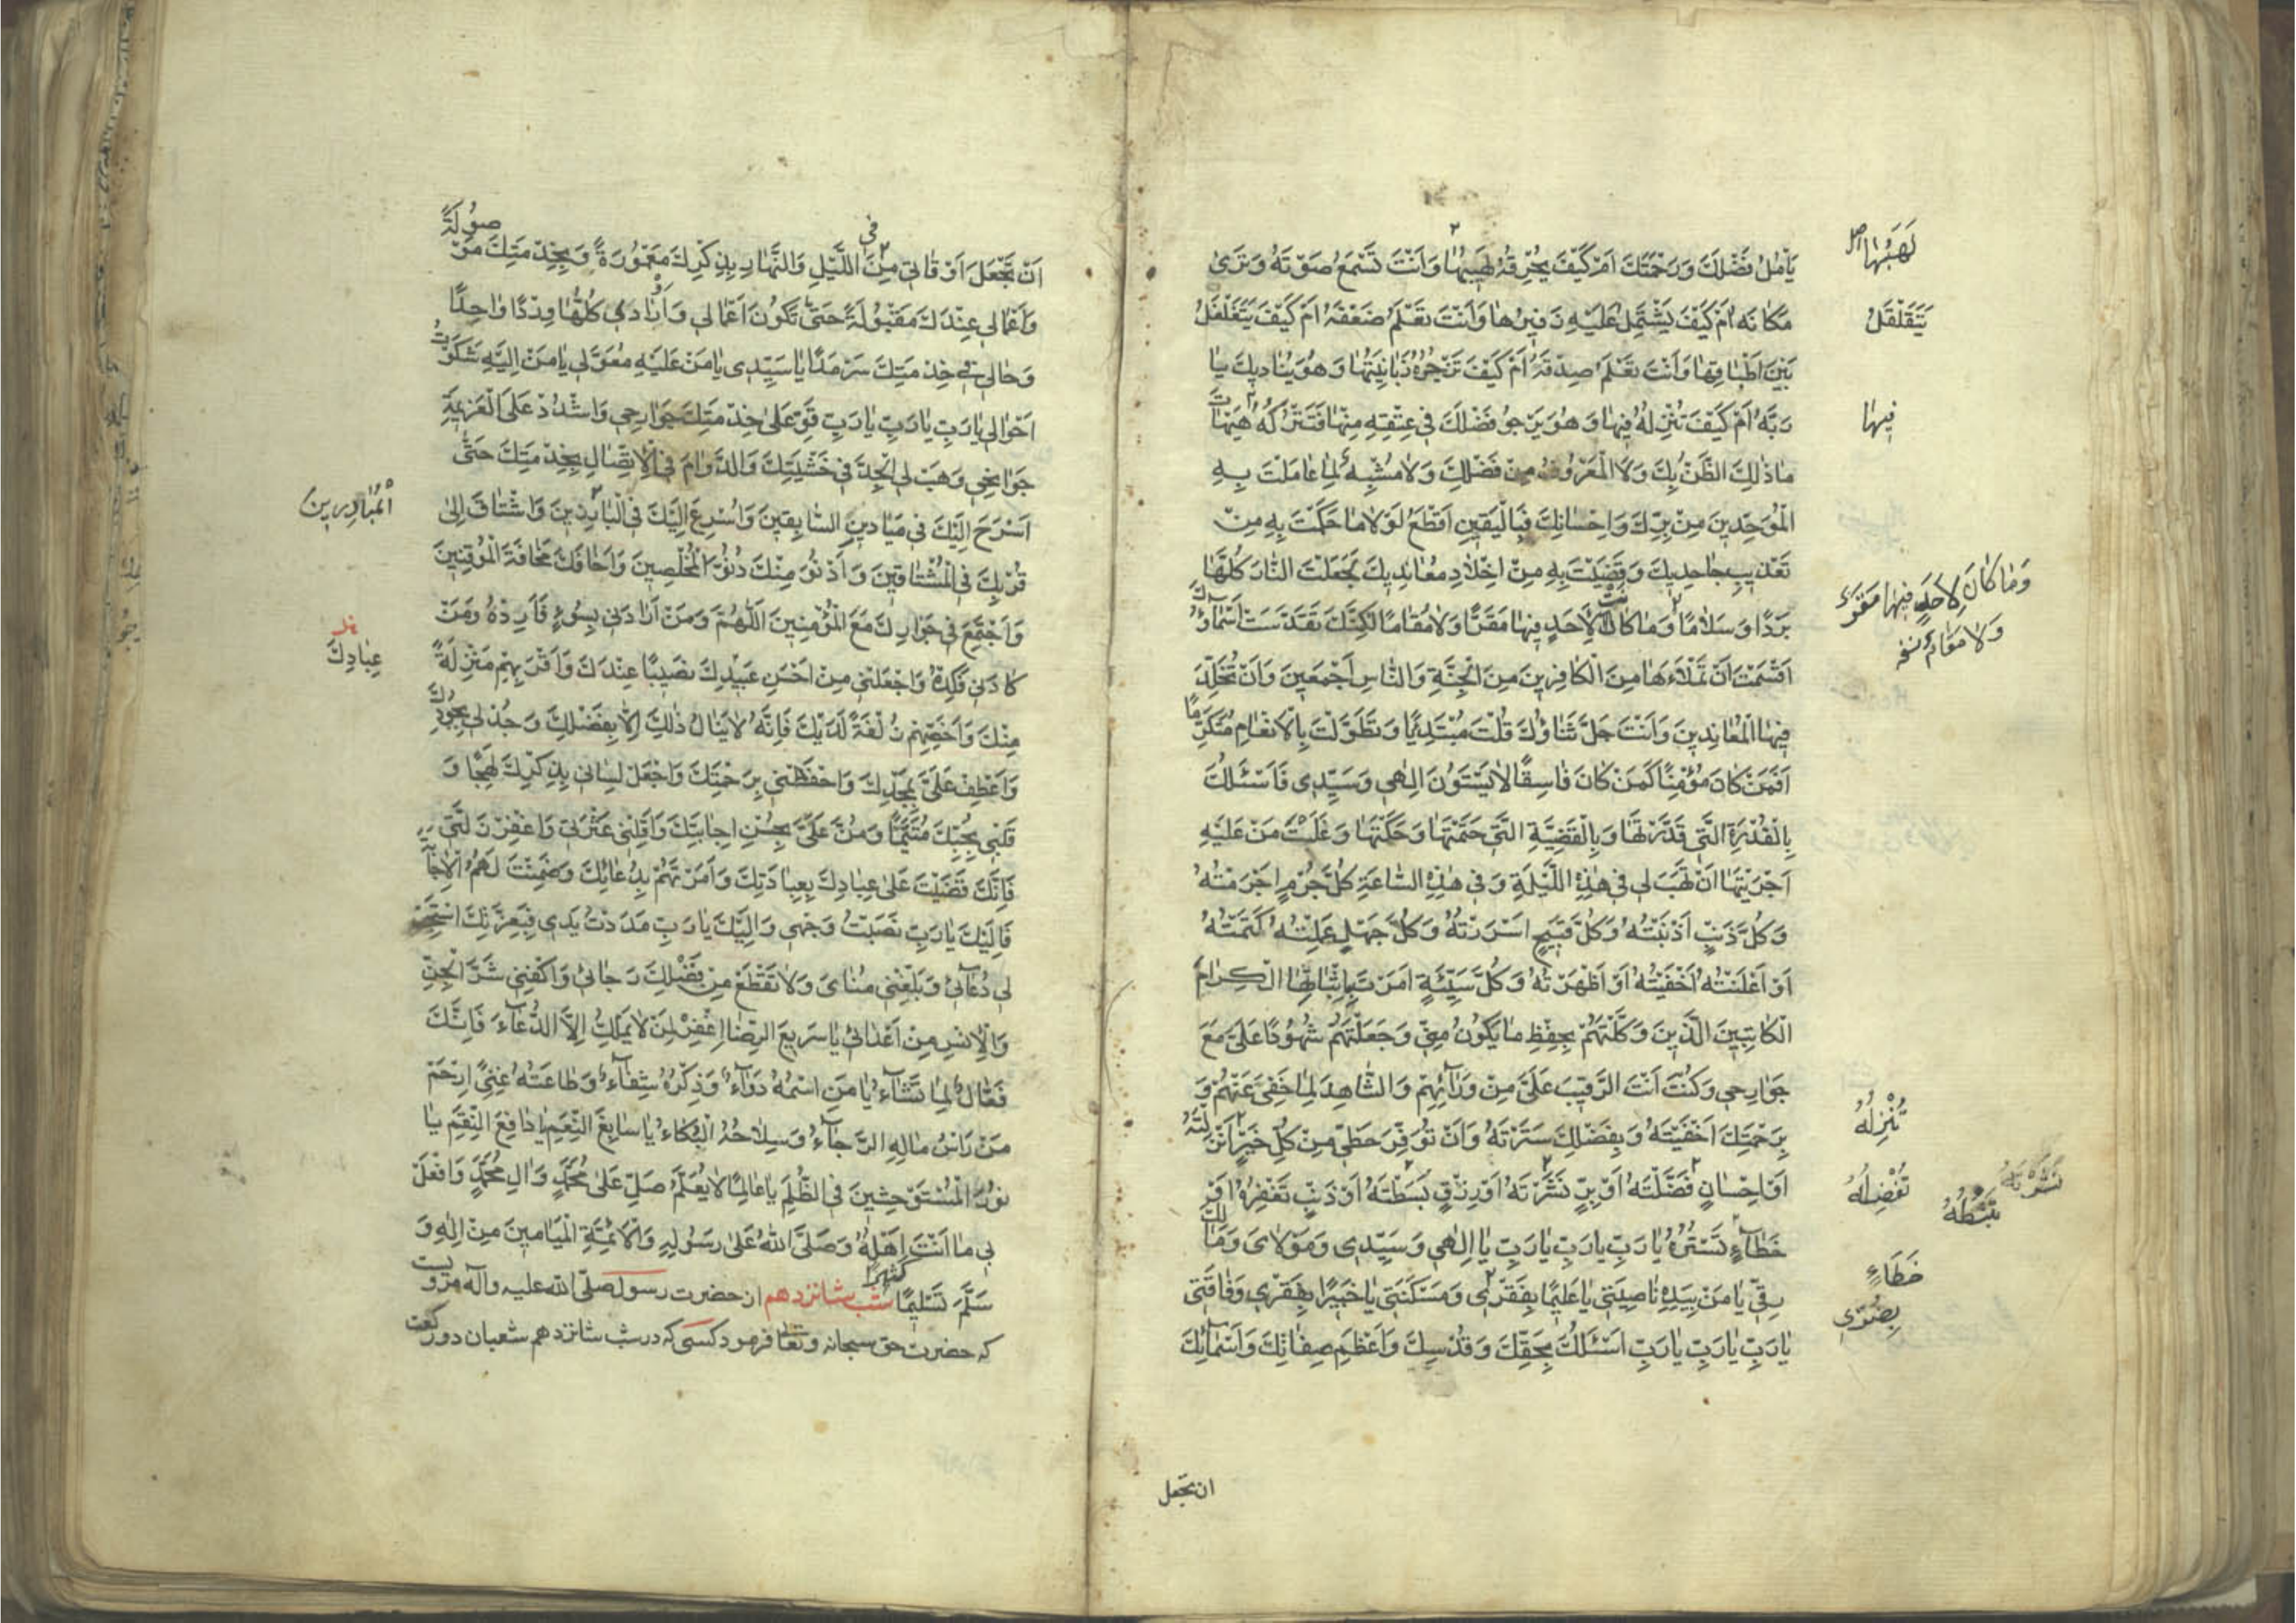 يَأْمُلُ فَضْلَكَ وَرَحْمَتَكَ اَمْ كَيْفَ يُحْرِقُهُ لَهَيبُهٰا وَاَنْتَ تَسْمَعُ صَوْتَهُ وَتَرىٰ
لَهَبُهٰا اصل
مَكٰانَهُ اَمْ كَيْفَ يَشْتَمِلُ عَلَيْهِ زَفيرُهٰا وَاَنْتَ تَعْلَمُ ضَعْفَهُ اَمْ كَيْفَ يَتَغَلْغَلُ
يَتَقَلْقَلُ
بَيْنَ اَطْبٰاقِهٰا وَاَنْتَ تَعْلَمُ صِدْقَهُ اَمْ كَيْفَ تَزْجُرُهُ زَبٰانِيَتُهٰا وَهُوَ يُنٰاديكَ يٰا
رَبَّهُ اَمْ كَيْفَ تُنْزِلُهُ فيهٰا وَهُوَ يَرْجُو فَضْلَكَ فى عِتْقِهِ مِنْهٰا فَتَتْرُكُهُ هَيْهٰاتَ
فيهٰا
مٰا ذٰلِكَ الظَّنُّ بِكَ وَلَا الْمَعْرُوفُ مِنْ فَضْلِكَ وَلٰا مُشْبِهٌ لِمٰا عٰامَلْتَ بِهِ
الْمُوَحِّدينَ مِنْ بِرِّكَ وَاِحْسٰانِكَ فَبِالْيَقينِ اَقْطَعُ لَوْلٰا مٰا حَكَمْتَ بِهِ مِنْ
تَعْذيبِ جٰاحِديكَ وَقَضَيْتَ بِهِ مِنْ اِخْلٰادِ مُعٰانِديكَ لَجَعَلْتَ النّٰارَ كُلَّهٰا
بَرْدًا وَسَلٰامًا وَمٰا كٰانَتْ لِاَحَدٍ فيهٰا مَقَرًّا وَلٰا مُقٰامًا لٰكِنَّكَ تَقَدَّسَتْ اَسْمٰاؤُكَ
وَمٰا كٰانَ لِاَحَدٍ فيهٰا مَقَرٌّ
وَلٰا مُقٰامٌ نسخه
اَقْسَمْتَ اَنْ تَمْلَاَهٰا مِنَ الْكٰافِرينَ مِنَ الْجِنَّةِ وَالنّٰاسِ اَجْمَعينَ وَاَنْ تُخَلِّدَ
فيهَا الْمُعٰانِدينَ وَاَنْتَ جَلَّ ثَنٰاؤُكَ قُلْتَ مُبْتَدِئًا وَتَطَوَّلْتَ بِالْاِنْعٰامِ مُتَكَرِّمًا
اَفَمَنْ كٰانَ مُؤْمِنًا كَمَنْ كٰانَ فٰاسِقًا لٰا يَسْتَوُونَ اِلٰهى وَسَيِّدى فَاَسْئَلُكَ
بِالْقُدْرَةِ الَّتى قَدَّرْتَهٰا وَبِالْقَضِيَّةِ الَّتى حَتَمْتَهٰا وَحَكَمْتَهٰا وَغَلَبْتَ مَنْ عَلَيْهِ
اَجْرَيْتَهٰا اَنْ تَهَبَ لى فى هٰذِهِ اللَّيْلَةِ وَفى هٰذِهِ السّٰاعَةِ كُلَّ جُرْمٍ اَجْرَمْتُهُ
وَكُلَّ ذَنْبٍ اَذْنَبْتُهُ وَكُلَّ قَبيحٍ اَسْرَرْتُهُ وَكُلَّ جَهْلٍ عَمِلْتُهُ كَتَمْتُهُ
اَوْ اَعْلَنْتُهُ اَخْفَيْتُهُ اَوْ اَظْهَرْتُهُ وَكُلَّ سَيِّئَةٍ اَمَرْتَ بِاِثْبٰاتِهَا الْكِرٰامَ
الْكٰاتِبينَ الَّذينَ وَكَّلْتَهُمْ بِحِفْظِ مٰا يَكُونُ مِنّى وَجَعَلْتَهُمْ شُهُودًا عَلَىَّ مَعَ
جَوٰارِحى وَكُنْتَ اَنْتَ الرَّقيبَ عَلَىَّ مِنْ وَرٰائِهِمْ وَالشّٰاهِدَ لِمٰا خَفِىَ عَنْهُمْ وَ
بِرَحْمَتِكَ اَخْفَيْتَهُ وَبِفَضْلِكَ سَتَرْتَهُ وَاَنْ تُوَفِّرَ حَظّى مِنْ كُلِّ خَيْرٍ اَنْزَلْتَهُ
تُنْزِلُهُ
اَوْ اِحْسٰانٍ فَضَّلْتَهُ اَوْ بِرٍّ نَشَرْتَهُ اَوْ رِزْقٍ بَسَطْتَهُ اَوْ ذَنْبٍ تَغْفِرُهُ اَوْ
تُفْضِلُهُ
تَبْسُطُهُ
خَطٰاءٍ تَسْتُرُهُ يٰا رَبِّ يٰا رَبِّ يٰا رَبِّ يٰا اِلٰهى وَسَيِّدى وَمَوْلٰاىَ وَمٰالِكَ
خَطَاءٍ
رِقّى يٰا مَنْ بِيَدِهِ نٰاصِيَتى يٰا عَليمًا بِفَقْرى وَمَسْكَنَتى يٰا خَبيرًا بِفَقْرى وَفٰاقَتى
بِضُرّى
يٰا رَبِّ يٰا رَبِّ يٰا رَبِّ اَسْئَلُكَ بِحَقِّكَ وَقُدْسِكَ وَاَعْظَمِ صِفٰاتِكَ وَاَسْمٰائِكَ
ان تجعل
اَنْ تَجْعَلَ اَوْقٰاتى مِنَ فى اللَّيْلِ وَالنَّهٰارِ بِذِكْرِكَ مَعْمُورَةً وَبِخِدْمَتِكَ مَوْصُولَةً
وَاَعْمٰالى عِنْدَكَ مَقْبُولَةً حَتّىٰ تَكُونَ اَعْمٰالى وَاَوْرٰادى كُلُّهٰا وِرْدًا وٰاحِدًا
وَحٰالى فى خِدْمَتِكَ سَرْمَدًا يٰا سَيِّدى يٰا مَنْ عَلَيْهِ مُعَوَّلى يٰا مَنْ اِلَيْهِ شَكَوْتُ
اَحْوٰالى يٰا رَبِّ يٰا رَبِّ يٰا رَبِّ قَوِّ عَلىٰ خِدْمَتِكَ جَوٰارِحى وَاشْدُدْ عَلَى الْعَزيمَةِ
جَوٰانِحى وَهَبْ لِىَ الْجِدَّ فى خَشْيَتِكَ وَالدَّوٰامَ فِى الْاِتِّصٰالِ بِخِدْمَتِكَ حَتّىٰ
اَسْرَحَ اِلَيْكَ فى مَيٰادينِ السّٰابِقينَ وَاُسْرِعَ اِلَيْكَ فِى الْبٰارِزينَ وَاَشْتٰاقَ اِلىٰ
الْمُبٰادِرينَ
قُرْبِكَ فِى الْمُشْتٰاقينَ وَاَدْنُوَ مِنْكَ دُنُوَّ الْمُخْلِصينَ وَاَخٰافَكَ مَخٰافَةَ الْمُوقِنينَ
وَاَجْتَمِعَ فى جِوٰارِكَ مَعَ الْمُؤْمِنينَ اَللّٰهُمَّ وَمَنْ اَرٰادَنى بِسُوءٍ فَاَرِدْهُ وَمَنْ
كٰادَنى فَكِدْهُ وَاجْعَلْنى مِنْ اَحْسَنِ عَبيدِكَ نَصيبًا عِنْدَكَ وَاَقْرَبِهِمْ مَنْزِلَةً
عِبٰادِكَ
مِنْكَ وَاَخَصِّهِمْ زُلْفَةً لَدَيْكَ فَاِنَّهُ لٰا يُنٰالُ ذٰلِكَ اِلّٰا بِفَضْلِكَ وَجُدْ لى بِجُودِكَ
وَاعْطِفْ عَلَىَّ بِمَجْدِكَ وَاحْفَظْنى بِرَحْمَتِكَ وَاجْعَلْ لِسٰانى بِذِكْرِكَ لَهِجًا وَ
قَلْبى بِحُبِّكَ مُتَيَّمًا وَمُنَّ عَلَىَّ بِحُسْنِ اِجٰابَتِكَ وَاَقِلْنى عَثْرَتى وَاغْفِرْ زَلَّتى
فَاِنَّكَ قَضَيْتَ عَلىٰ عِبٰادِكَ بِعِبٰادَتِكَ وَاَمَرْتَهُمْ بِدُعٰائِكَ وَضَمِنْتَ لَهُمُ الْاِجٰابَةَ
فَاِلَيْكَ يٰا رَبِّ نَصَبْتُ وَجْهى وَاِلَيْكَ يٰا رَبِّ مَدَدْتُ يَدى فَبِعِزَّتِكَ اسْتَجِبْ
لى دُعٰائى وَبَلِّغْنى مُنٰاىَ وَلٰا تَقْطَعْ مِنْ فَضْلِكَ رَجٰائى وَاكْفِنى شَرَّ الْجِنِّ
وَالْاِنْسِ مِنْ اَعْدٰائى يٰا سَريعَ الرِّضٰا اِغْفِرْ لِمَنْ لٰا يَمْلِكُ اِلَّا الدُّعٰاءَ فَاِنَّكَ
فَعّٰالٌ لِمٰا تَشٰاءُ يٰا مَنِ اسْمُهُ دَوٰاءٌ وَذِكْرُهُ شِفٰاءٌ وَطٰاعَتُهُ غِنًى اِرْحَمْ
مَنْ رَاْسُ مٰالِهِ الرَّجٰاءُ وَسِلٰاحُهُ الْبُكٰاءُ يٰا سٰابِغَ النِّعَمِ يٰا دٰافِعَ النِّقَمِ يٰا
نُورَ الْمُسْتَوْحِشينَ فِى الظُّلَمِ يٰا عٰالِمًا لٰا يُعَلَّمُ صَلِّ عَلىٰ مُحَمَّدٍ وَاٰلِ مُحَمَّدٍ وَافْعَلْ
بى مٰا اَنْتَ اَهْلُهُ وَصَلَّى اللّٰهُ عَلىٰ رَسُولِهِ وَالْاَئِمَّةِ الْمَيٰامينَ مِنْ اٰلِهِ وَ
سَلَّمَ تَسْليمًا كَثيرًا شب شانزدهم از حضرت رسول صلّى اللّه عليه وآله مرويست
كه حضرت حق سبحانه وتعالى فرمود كسى كه در شب شانزدهم شعبان دو ركعت